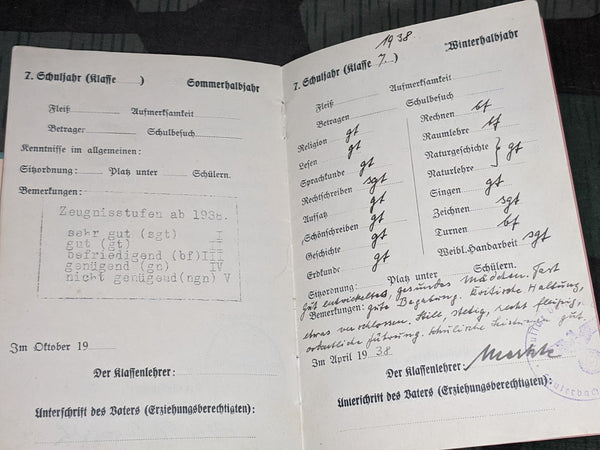 7. Schuljahr (Klasse ) Sommerhalbjahr
Fleiß Aufmerksamkeit
Betragen Schulbesuch
Kenntnisse im allgemeinen:
Sitzordnung: Platz unter Schülern.
Bemerkungen:
Zeugnisstufen ab 1938.
sehr gut (sgt) I
gut (gt) II
befriedigend (bf) III
genügend (gn) IV
nicht genügend(ngn) V
Im Oktober 19
Der Klassenlehrer:
Unterschrift des Vaters (Erziehungsberechtigten):
1938
7. Schuljahr (Klasse 7. ) Winterhalbjahr
Fleiß Aufmerksamkeit
Betragen Schulbesuch
Religion gt
Lesen gt
Sprachkunde gt
Rechtschreiben sgt
Aufsatz gt
Schönschreiben gt
Geschichte gt
Erdkunde gt
Rechnen bf
Raumlehre bf
Naturgeschichte } gt
Naturlehre
Singen gt
Zeichnen sgt
Turnen bf
Weibl. Handarbeit sgt
Sitzordnung: Platz unter Schülern.
Gut entwickeltes, gesundes Mädchen. Fast
Bemerkungen: gute Begabung. Kritische Haltung,
etwas verschlossen. Still, stetig, recht fleißig,
ordentliche Führung. Schulische Leistungen gut.
Im April 1938
Der Klassenlehrer:
Unterschrift des Vaters (Erziehungsberechtigten):